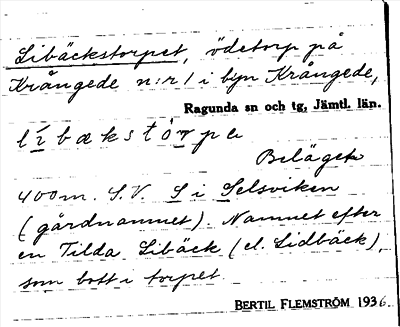 Libäckstorpet, ödetorp på
Krångede n:r 1 i byn Krångede,
Ragunda sn och tg, Jämtl. län.
lìbækstòrpe
Beläget
400 m. S.V. S i Selsviken
(gårdnamnet). Namnet efter
en Tilda Libäck (el. Lidbäck),
som bott i torpet.
BERTIL FLEMSTRÖM 1936.